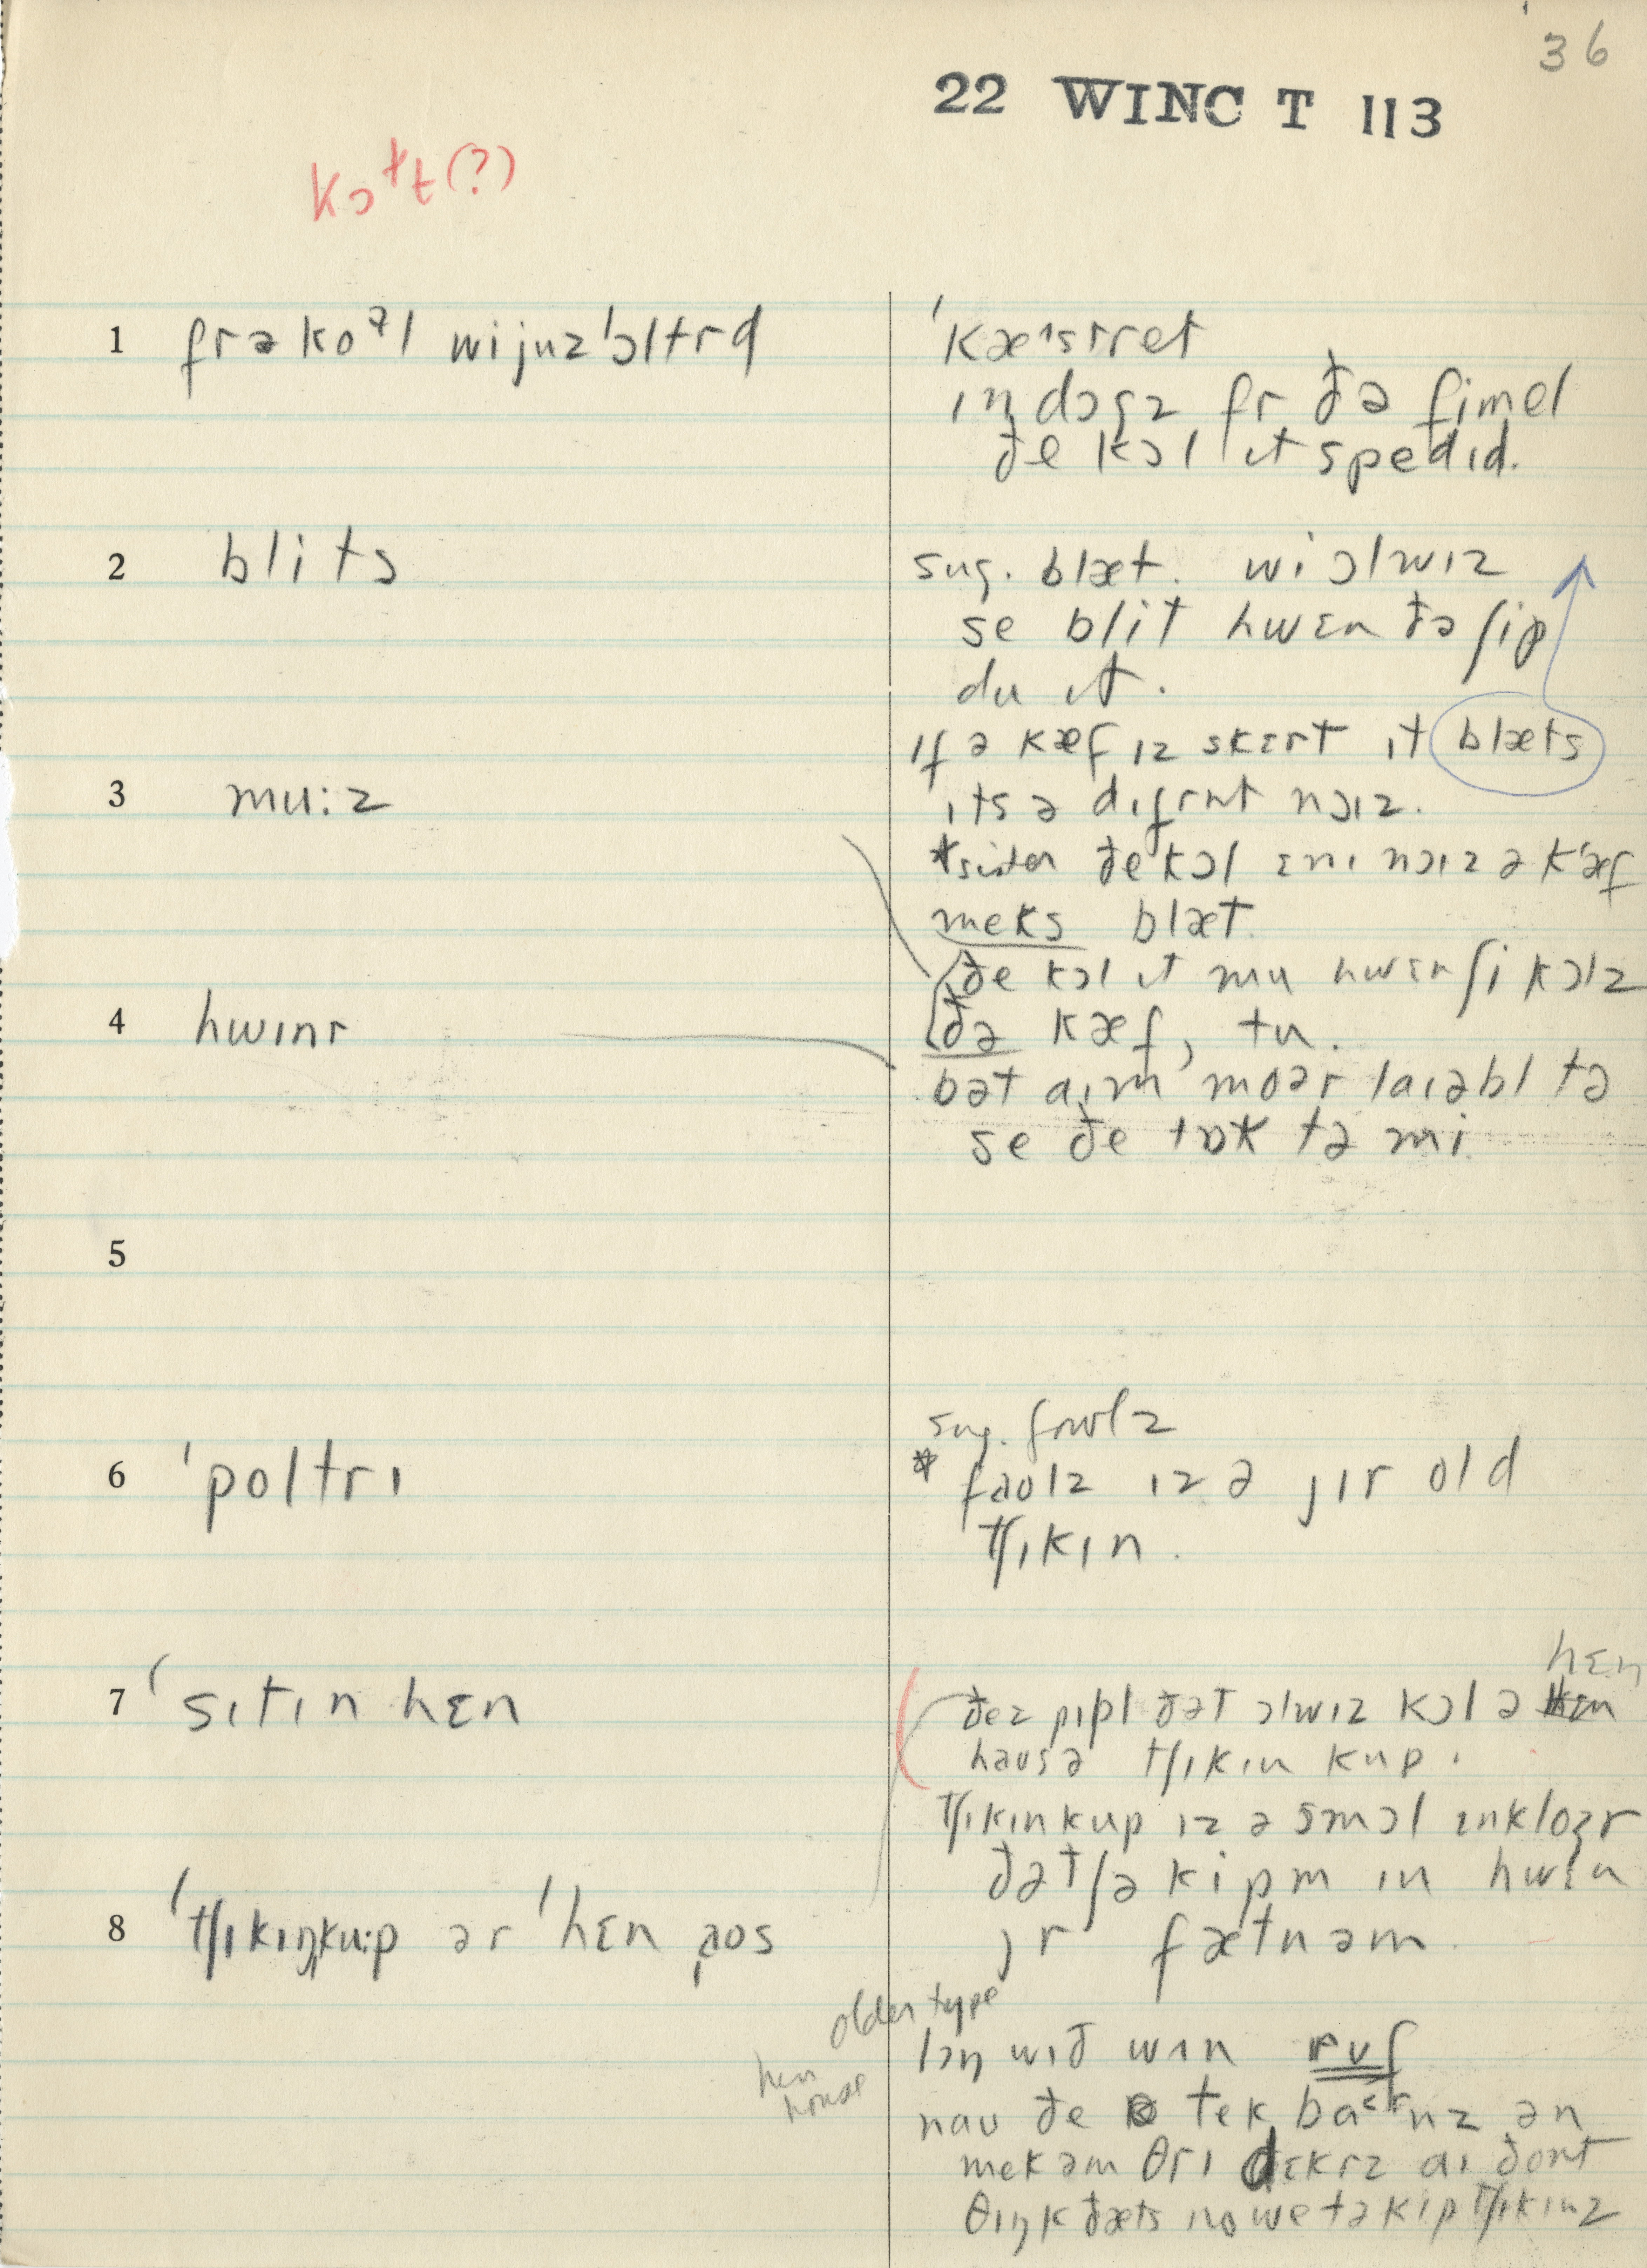 36
22 WINC T 113
kɔɫt(?)
1 frə koᵊl wi juz ˈɔltrd
ˈkæˑstret
ɪn dɔgz fr ðə fimel
ðe kɔl ɪt spedɪd.
2 blits
sug. blæt. wi ɔlwɪz
se blit hwɛn ðə ʃip
du ɪt.
ɪf ə kæf ɪz skɛrt ɪt blæts
3 mu:z
ɪts ə dɪfrnt nɔɪz.
ðe kɔl ɛnɪ nɔɪz ə kæf
meks blæt.
ðe kɔl ɪt mu hwɛn ʃi kɔlz
4 hwɪnr
ðə kæf, tu.
bət aɪm moər laɪəbl tə
se ðe tɒk tə mi.
5
sug. fowlz
6 ˈpoltrɪ
* faolz ɪz ə jɪr old
tʃɪkɪn.
hɛn
7 ˈsɪtɪn hɛn
ðez pipl ðət ɔlwɪz kɔl ə
haus ə tʃɪkɪn kup.
tʃɪkɪnkup ɪz ə smɔl ɪnkloʒr
ðət ʃə kipm ɪn hwɛn
8 ˈtʃɪkɪŋku:p ər ˈhɛn ˌaos
jr fætnəm.
older type
lɔŋ wɪð wʌn ruf
hen
house
nau ðe tek barnz ən
mek əm θrɪ dɛkrz aɪ dont
θɪŋk ðæts no we tə kip tʃɪkɪnz